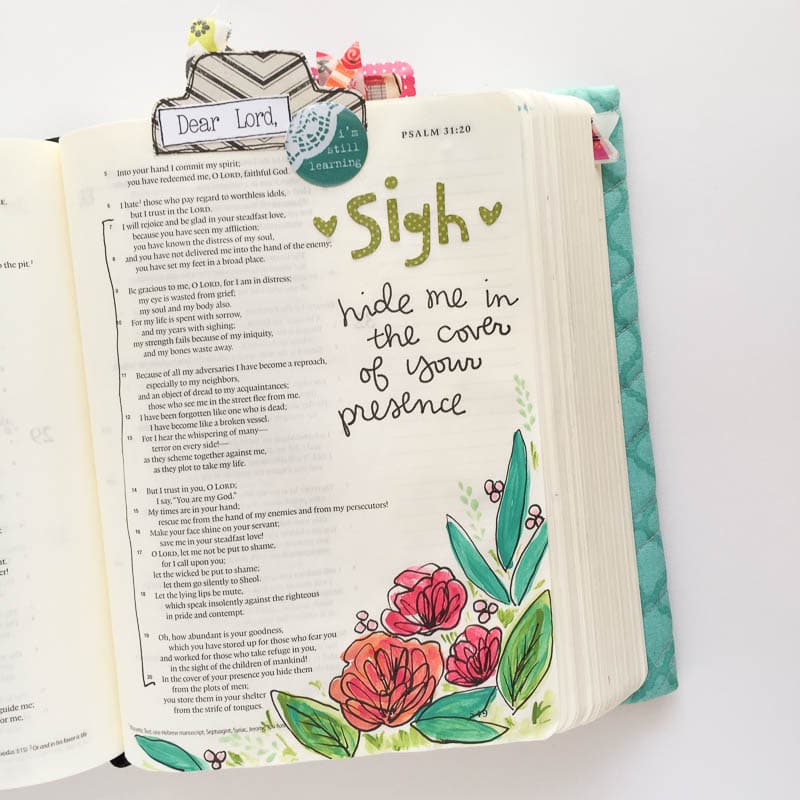 Dear Lord,
i'm
still
learning
PSALM 31:20
5 Into your hand I commit my spirit;
you have redeemed me, O LORD, faithful God.
6 I hate¹ those who pay regard to worthless idols,
but I trust in the LORD.
7 I will rejoice and be glad in your steadfast love,
because you have seen my affliction;
you have known the distress of my soul,
8 and you have not delivered me into the hand of the enemy;
you have set my feet in a broad place.
9 Be gracious to me, O LORD, for I am in distress;
my eye is wasted from grief;
my soul and my body also.
10 For my life is spent with sorrow,
and my years with sighing;
my strength fails because of my iniquity,
and my bones waste away.
11 Because of all my adversaries I have become a reproach,
especially to my neighbors,
and an object of dread to my acquaintances;
those who see me in the street flee from me.
12 I have been forgotten like one who is dead;
I have become like a broken vessel.
13 For I hear the whispering of many—
terror on every side!—
as they scheme together against me,
as they plot to take my life.
14 But I trust in you, O LORD;
I say, "You are my God."
15 My times are in your hand;
rescue me from the hand of my enemies and from my persecutors!
16 Make your face shine on your servant;
save me in your steadfast love!
17 O LORD, let me not be put to shame,
for I call upon you;
let the wicked be put to shame;
let them go silently to Sheol.
18 Let the lying lips be mute,
which speak insolently against the righteous
in pride and contempt.
19 Oh, how abundant is your goodness,
which you have stored up for those who fear you
and worked for those who take refuge in you,
in the sight of the children of mankind!
20 In the cover of your presence you hide them
from the plots of men;
you store them in your shelter
from the strife of tongues.
Sigh
hide me in
the cover
of your
presence
the pit.¹
guide me;
or me.